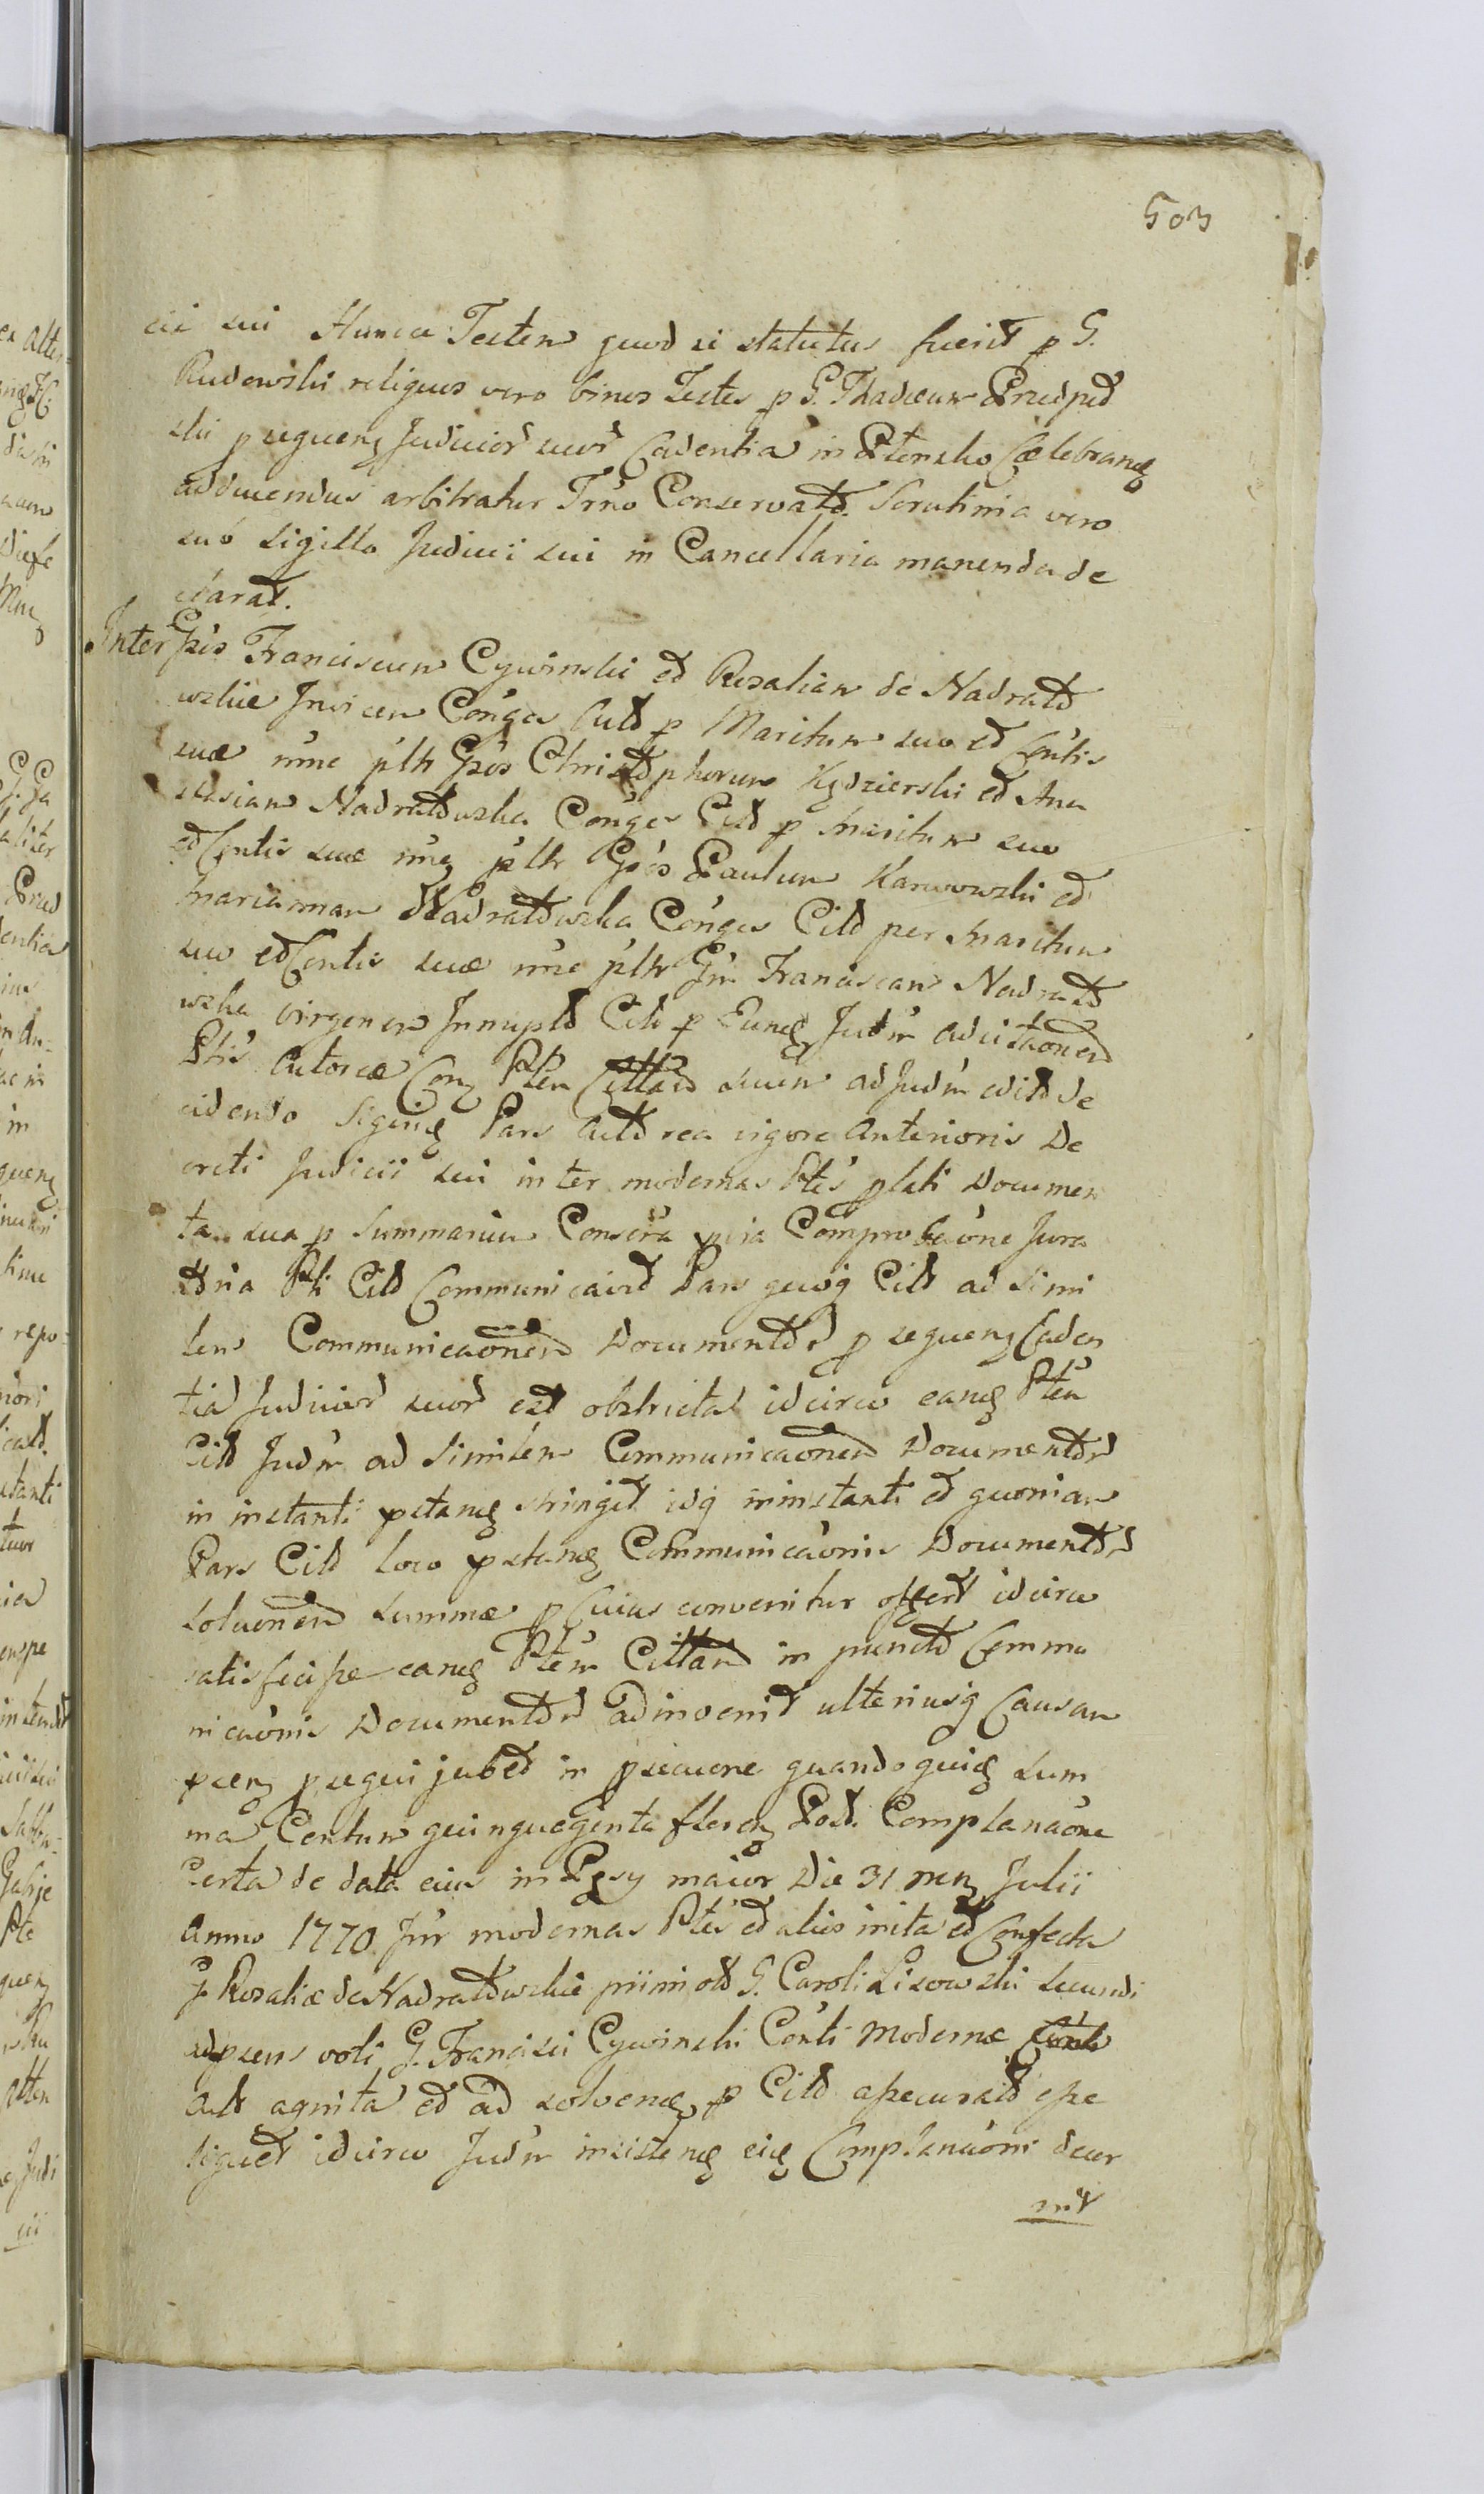 503
cii sui Hunca Testem quod si statutus fuerit p G.
Rudowski reliquos vero binos Testes p G. Thadeum Przedped
ski p sequen Judicior suor Cadentia in Plonsko Caelebrand
adducendus arbitratur Trno Conservatt. Scrutinia vero
sub sigillo Judicii sui in Cancellaria manenda de
clarat.
Inter Gsos Franciscum Cywinski et Rosaliam de Nadratt
wskie Invicem Conges Actt p Maritum suo et Centis
suae nme plt Gsos Christophorum Kędzierski et Ana
stasiam Nadrattwska Conges Citt p Maritum suo
et Centis suae nme plt Gsos Paulum Karwowski et
Mariannam Nadrattwska Conges Citt per Maritum
suo et Centis suae nme plt Gm Franciscam Nadratt
wska virginem Innuptt Citt p Eund Judm adcitaonem
Ptis Actoreae Con Ptem Cittam suum ad Judm editt de
cidendo Siquid Pars Acttrea vigore Anterioris De
creti Judicii sui inter modernas Ptes plati Documen
ta sua p Summarium Conscra pvia Comprobaone Jura
ttria Pti Citt Communicavit Pars quoq Citt ad Simi
lem Communicaonem Documenttr p sequen Caden
tia Judicior suor est obstricta idcirco eand Ptem
Citt Judm ad Similem Communicaonem Documenttr
in instanti pstand stringit idq in instanti et quoniam
Pars Citt loco pstand Communicaonis Documenttr
Soluonem Summae p Cuius convenitur offert idcirco
satisfecisse eand Ptem Cittam in punctt Commu
nicaonis Documenttr adinvenit ulteriusq Causam
pcen psequi jubet in psecuone quandoquid Sum
ma Centum quinquaginta floren Pol. Complanaone
Certa de data eius in Pęsy maior Die 31 men Julii
Anno 1770 Intr modernas Ptes et alios inita et Confecta
G Rosaliae de Nadrattwskie primi ott G. Caroli Lisowski secundi
adpsens voti G. Francisci Cywinski Conti modernae
Actt agnita et ad solvend p Citt assecuratt esse
liquet idcirco Judm insistend eid Complanaoni decer
nit